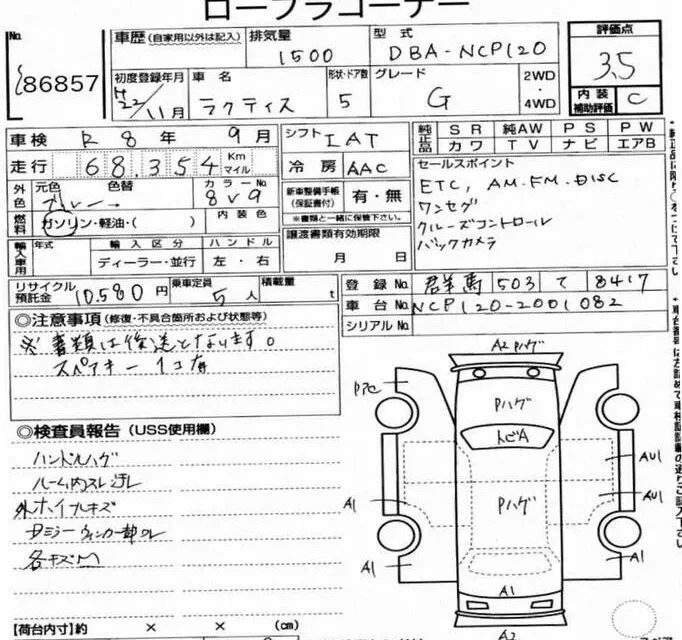 ロープラコーナー
No.
86857
車歴 (自家用以外は記入) 排気量 1500 型式 DBA-NCP120
評価点 3.5
初度登録年月 H22/11月 車名 ラクティス 形状・ドア数 5 グレード G 2WD・4WD
内装補助評価 C
車検 R8年 9月 シフト IAT 純正品 SR 純AW PS PW
カワ TV ナビ エアB
走行 68,354 Km マイル 冷房 AAC セールスポイント
外色 元色 色替 カラーNo 8V9 新車整備手帳(保証書付) 有・無 ETC, AM-FM-DISC
※書類と一緒に保管下さい。 ワンセグ
燃料 ガソリン・軽油・( ) 内装色 クルーズコントロール
譲渡書類有効期限 バックカメラ
輸入車用 年式 輸入区分 ハンドル
ディーラー・並行 左・右 月 日
リサイクル預託金 10,580円 乗車定員 5人 積載量 t 登録No 群馬 503 て 8417
車台No NCP120-2001082
シリアルNo
◎注意事項 (修復・不具合箇所および状態等)
※書類は後送となります。
スペアキー 1コ有
◎検査員報告 (USS使用欄)
ハンドルハゲ
ルーム内スレ汚レ
外ホイールキズ
ウィンカー部ワレ
各キズM
A2 Pハゲ
Pハゲ
トビA
AU1
Pハゲ
A1
AU1
A1
A1
A1
A2
【荷台内寸】約 × × (cm)